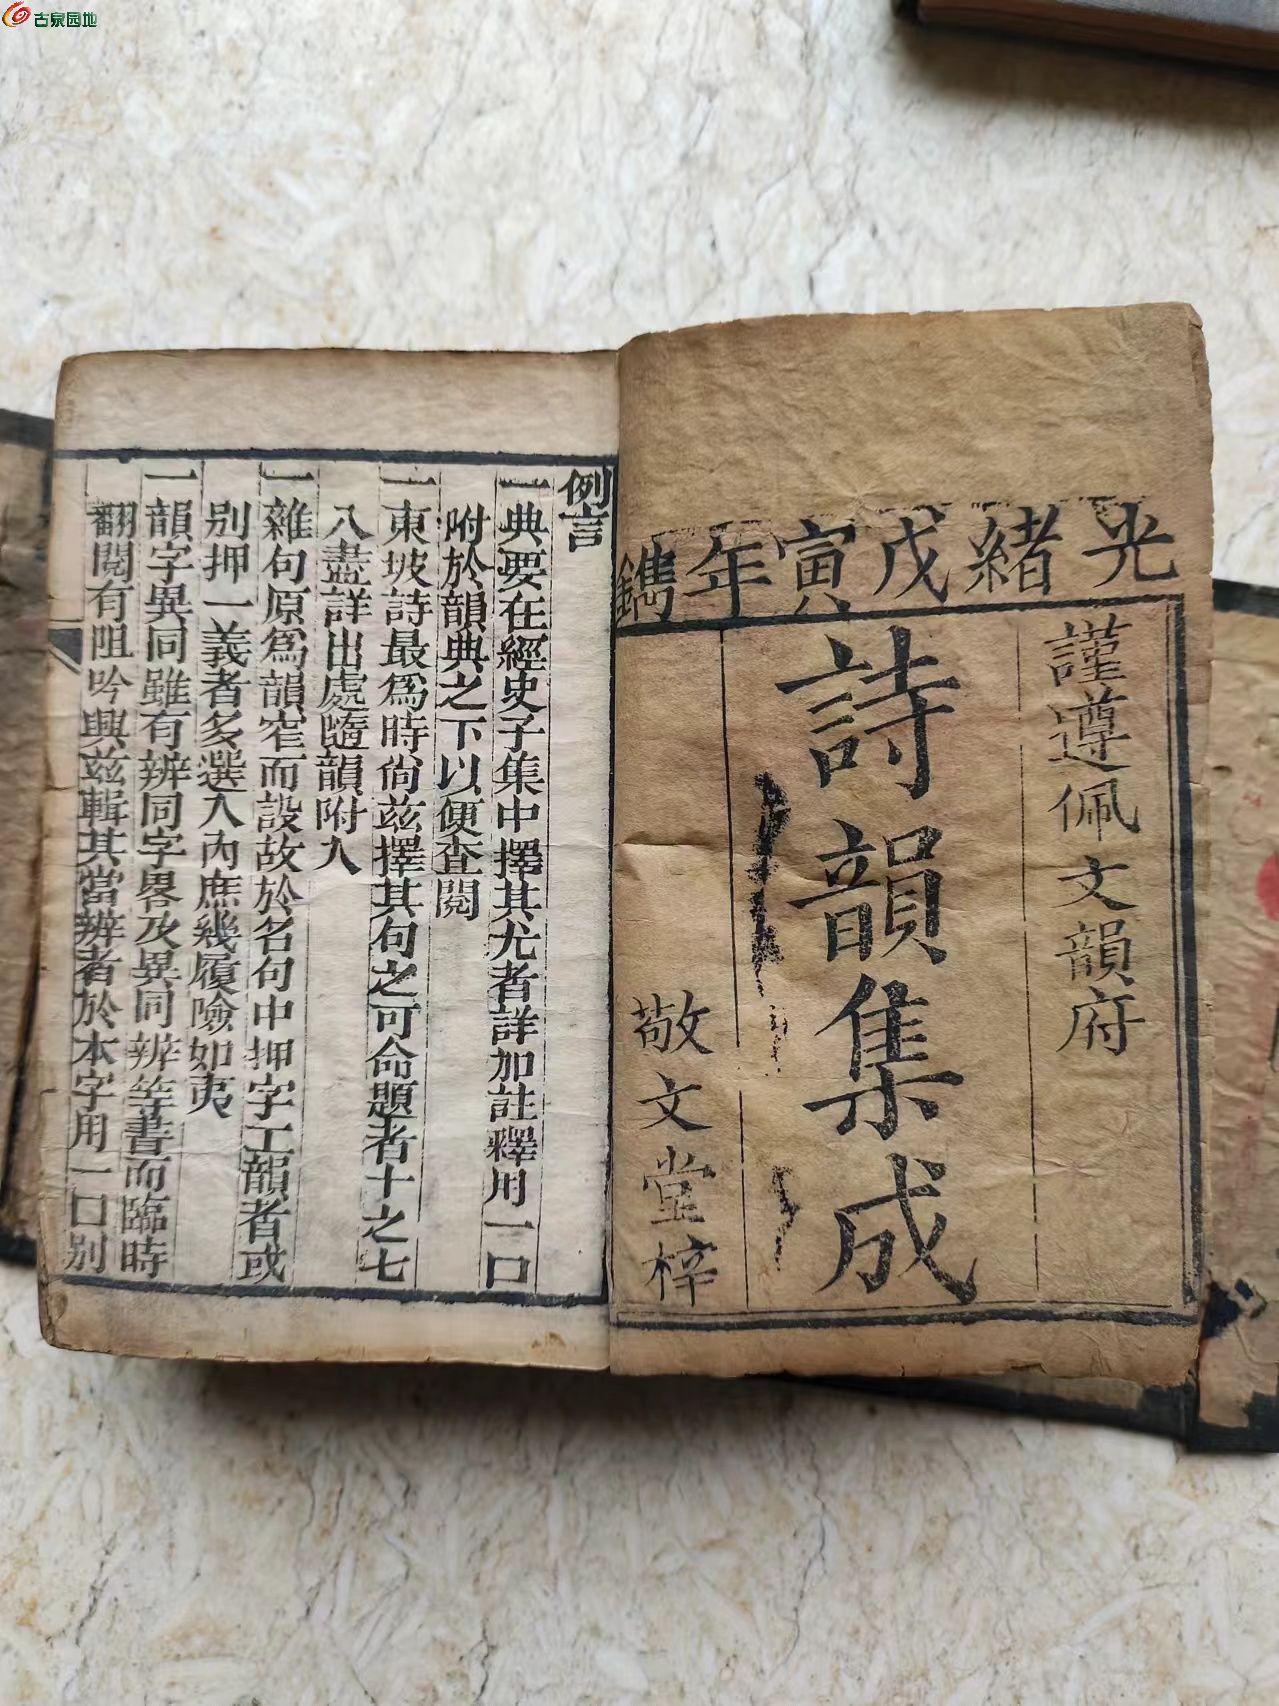 古泉园地
光緒戊寅年鐫
謹遵佩文韻府
詩韻集成
敬文堂梓
例言
一典要在經史子集中擇其尤者詳加註釋用一口
附於韻典之下以便查閱
一東坡詩最爲時尙茲擇其句之可命題者十之七
八盡詳出處隨韻附入
一雜句原爲韻窄而設故於名句中押字工韻者或
別押一義者多選入內庶幾履險如夷
一韻字異同雖有辨同字畧及異同辨等書而臨時
翻閱有阻吟興茲輯其當辨者於本字用一口別